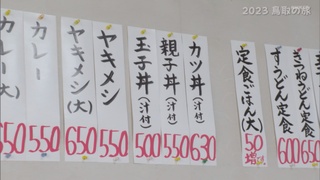 2023 鳥取の旅
きつねうどん定食
650
すうどん定食
600
定食ごはん(大)
50増
カツ丼(汁付)
630
親子丼(汁付)
550
玉子丼(汁付)
500
ヤキメシ
550
ヤキメシ(大)
650
カレー
550
カレー(大)
650